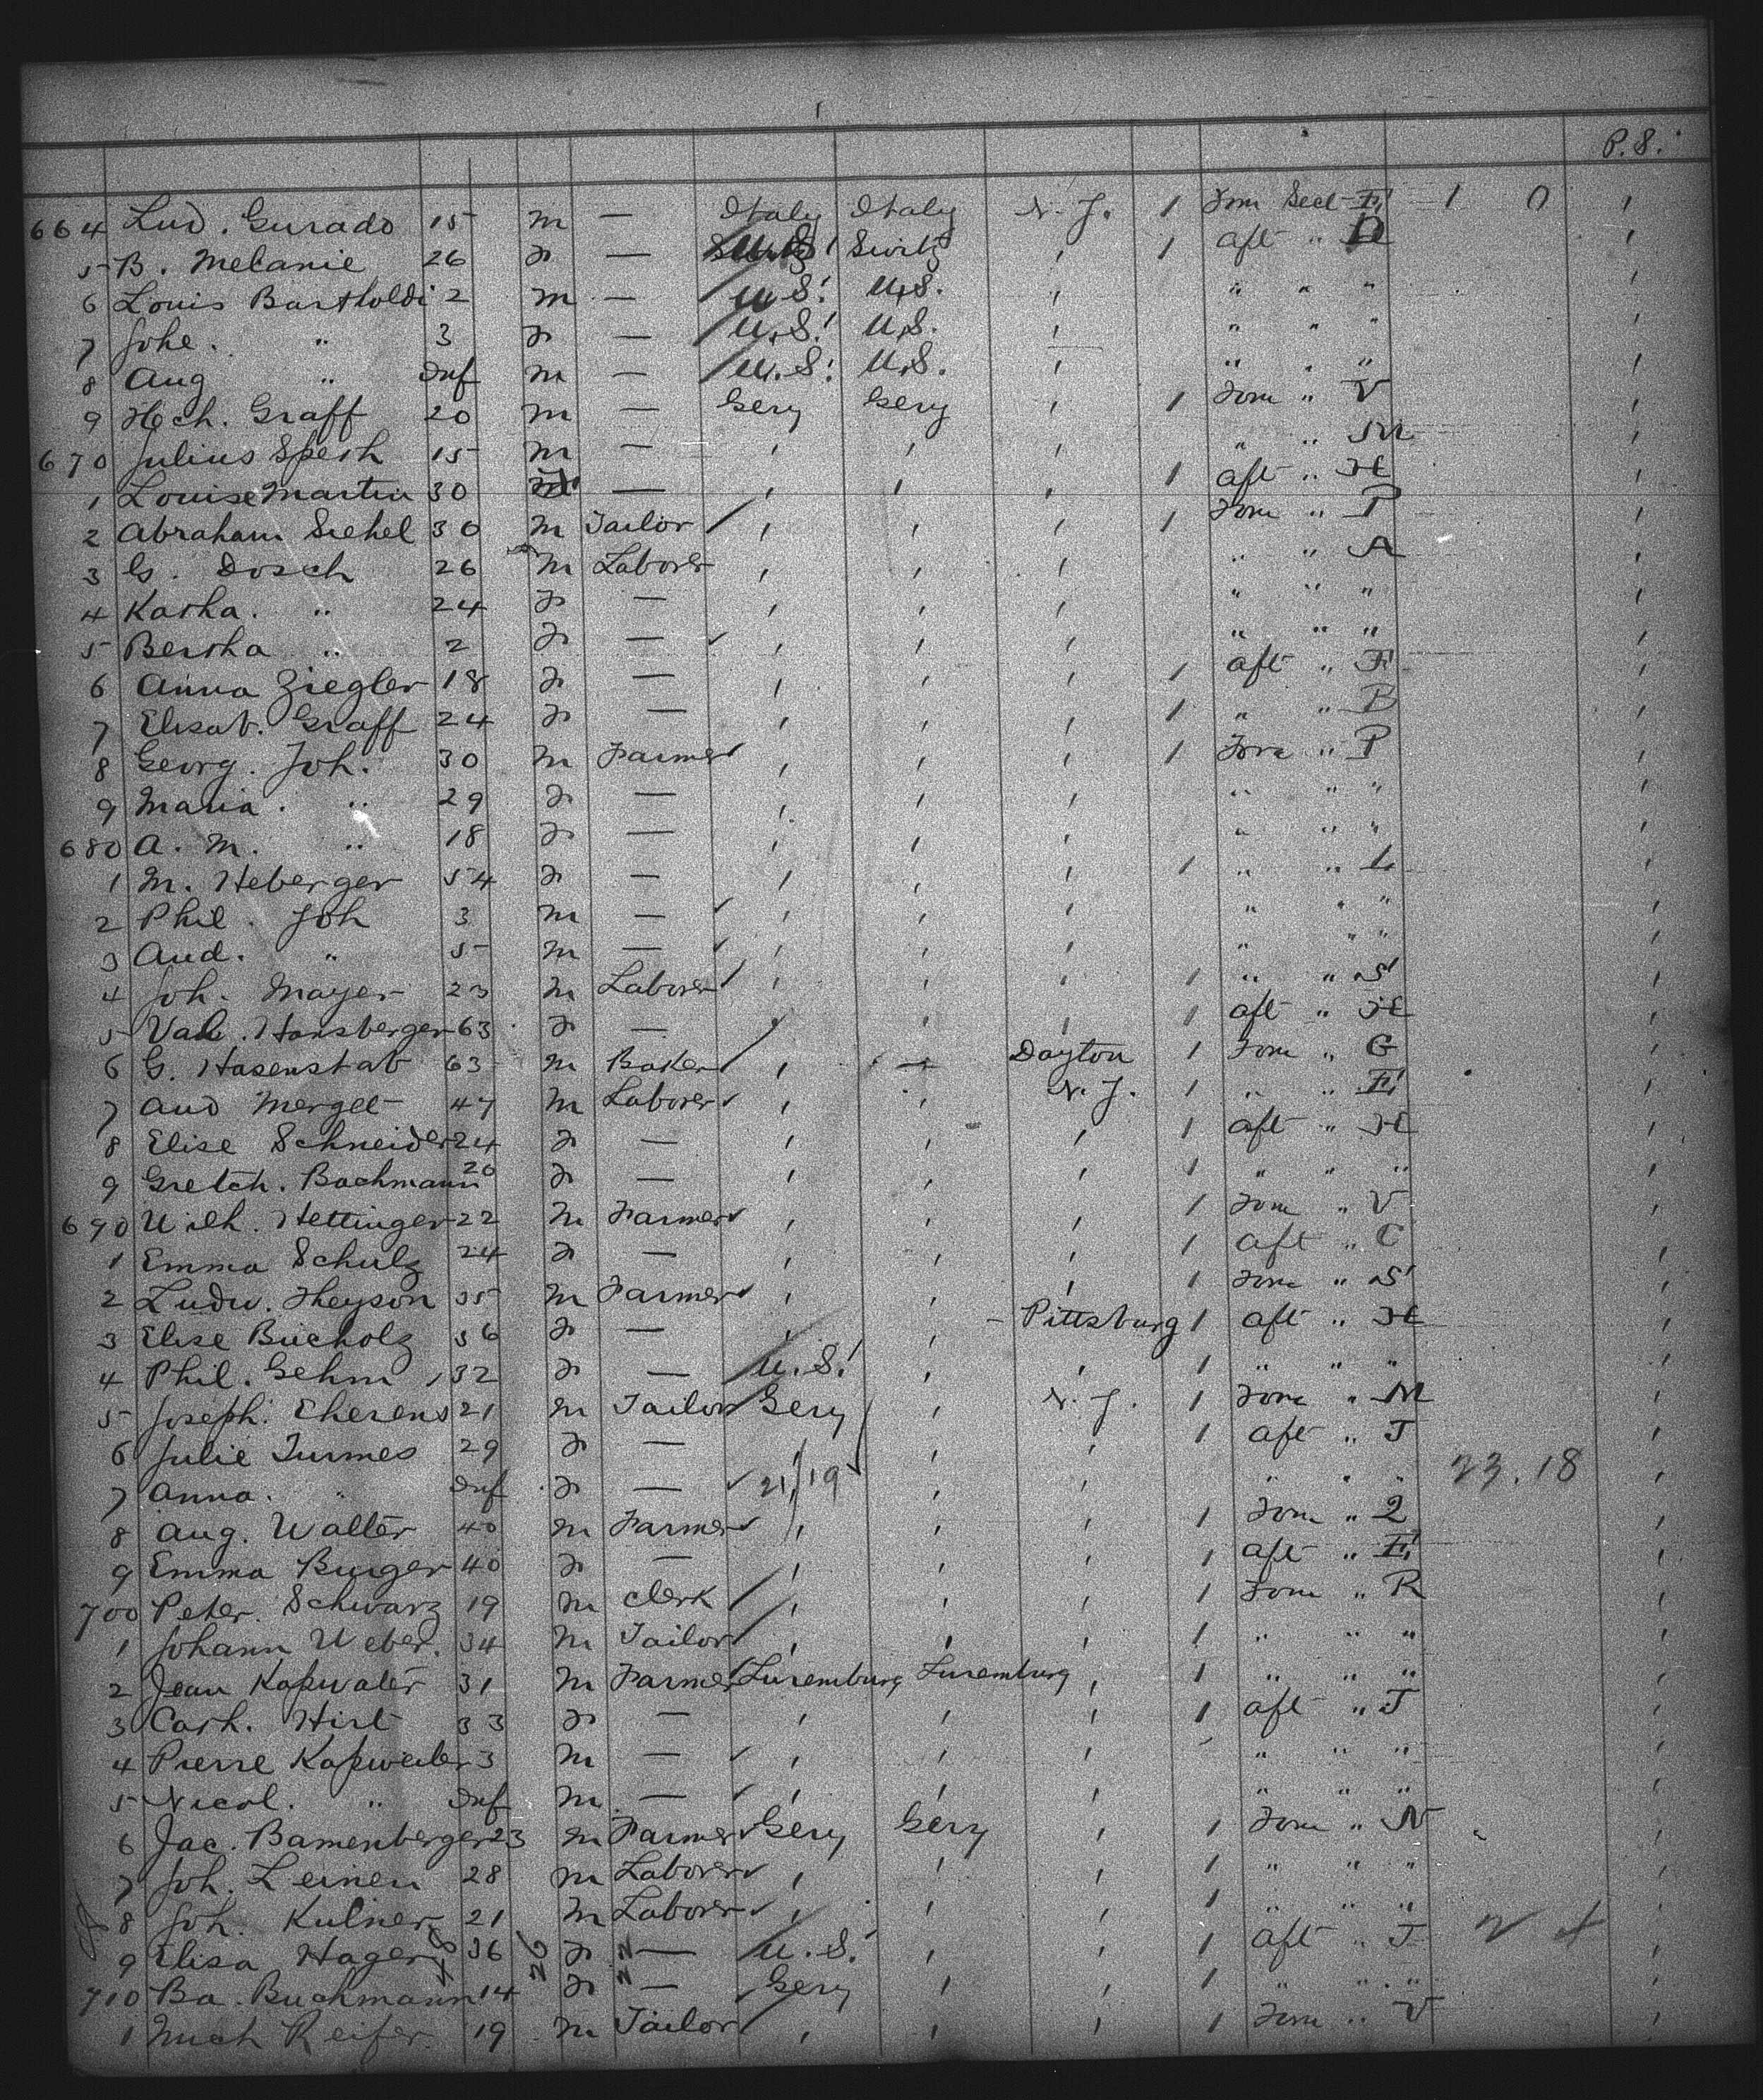 P. 8.
664 Lud. Gurado 15 m — Italy Italy N. J. 1 Forw Sect E 1 0
5 B. Melanie 26 f — Switz Switz " 1 aft " D
6 Louis Bartholdi 2 m — U.S. U.S. " " " "
7 Johe. " 3 f — U.S. U.S. " " " "
8 Aug " Inf m — U.S. U.S. " " " "
9 Hch. Graff 20 m — Gery Gery " 1 Forw " V
670 Julius Spesh 15 m — " " " " " M
1 Louise Martin 30 — " " " 1 aft " H
2 Abraham Siehel 30 m Tailor " " " 1 Forw " P
3 G. Dosch 26 m Laborer " " " " " N
4 Katha. " 24 f — " " " " " "
5 Bertha " 2 f — " " " " " "
6 Anna Ziegler 18 f — " " " 1 aft " F
7 Elisab. Graff 24 f — " " " 1 " " B
8 Georg. Joh. 30 m Farmer " " " 1 Forw " P
9 Maria. " 29 f — " " " " " "
680 A. M. " 18 f — " " " " " "
1 M. Heberger 54 f — " " " 1 " " L
2 Phil. Joh 3 m — " " " " " "
3 And. " 5 m — " " " " " "
4 Joh. Mayer 23 m Laborer " " " 1 " " S
5 Val. Hansberger 63 f — " " " 1 aft " H
6 G. Hasenstab 63 m Baker " " Dayton 1 Forw " G
7 And Merget 47 m Laborer " " N. J. 1 " " E
8 Elise Schneider 24 f — " " " 1 aft " H
9 Gretch. Bachmann 20 f — " " " 1 " " "
690 Wilh. Hettinger 22 m Farmer " " " 1 Forw " V
1 Emma Schulz 24 f — " " " 1 aft " C
2 Ludw. Theyson 35 m Farmer " " " 1 Forw " S
3 Elise Bucholz 56 f — " " Pittsburg 1 aft " H
4 Phil. Gehm 32 f — U.S. " " 1 " " "
5 Joseph. Eherens 21 m Tailor Gery " N. J. 1 Forw " M
6 Julie Turmes 29 f — " " " 1 aft " J
7 Anna. " Inf f — 21/19 " " " " " 23.18
8 Aug. Walter 40 m Farmer " " " 1 Forw " Q
9 Emma Burger 40 f — " " " 1 aft " E
700 Peter. Schwarz 19 m Clerk " " " 1 Forw " R
1 Johann Weber. 34 m Tailor " " " 1 " " "
2 Jean Kapwaler 31 m Farmer Luxemburg Luxemburg " 1 " " "
3 Cath. Hirt 33 f — " " " 1 aft " J
4 Pierre Kapweiler 3 m — " " " " " "
5 Nicol. " Inf m — " " " " " "
6 Jac. Bamenberger 23 m Farmer Gery Gery " 1 Forw " N
7 Joh. Leinen 28 m Laborer " " " 1 " " "
8 Joh. Kulner 21 m Laborer " " " 1 " " "
9 Elisa Hager 36 26 f 22 — U.S. " " 1 aft " J
710 Ba. Buchmann 14 f — Gery " " 1 " " "
1 Mich Reifer 19 m Tailor " " " 1 Forw " V